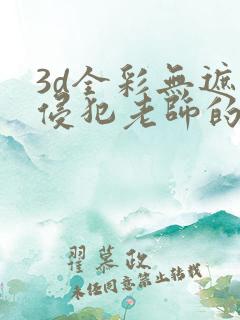 3d全彩無遮
侵犯老師的
翟慕政
未经同意禁止转载